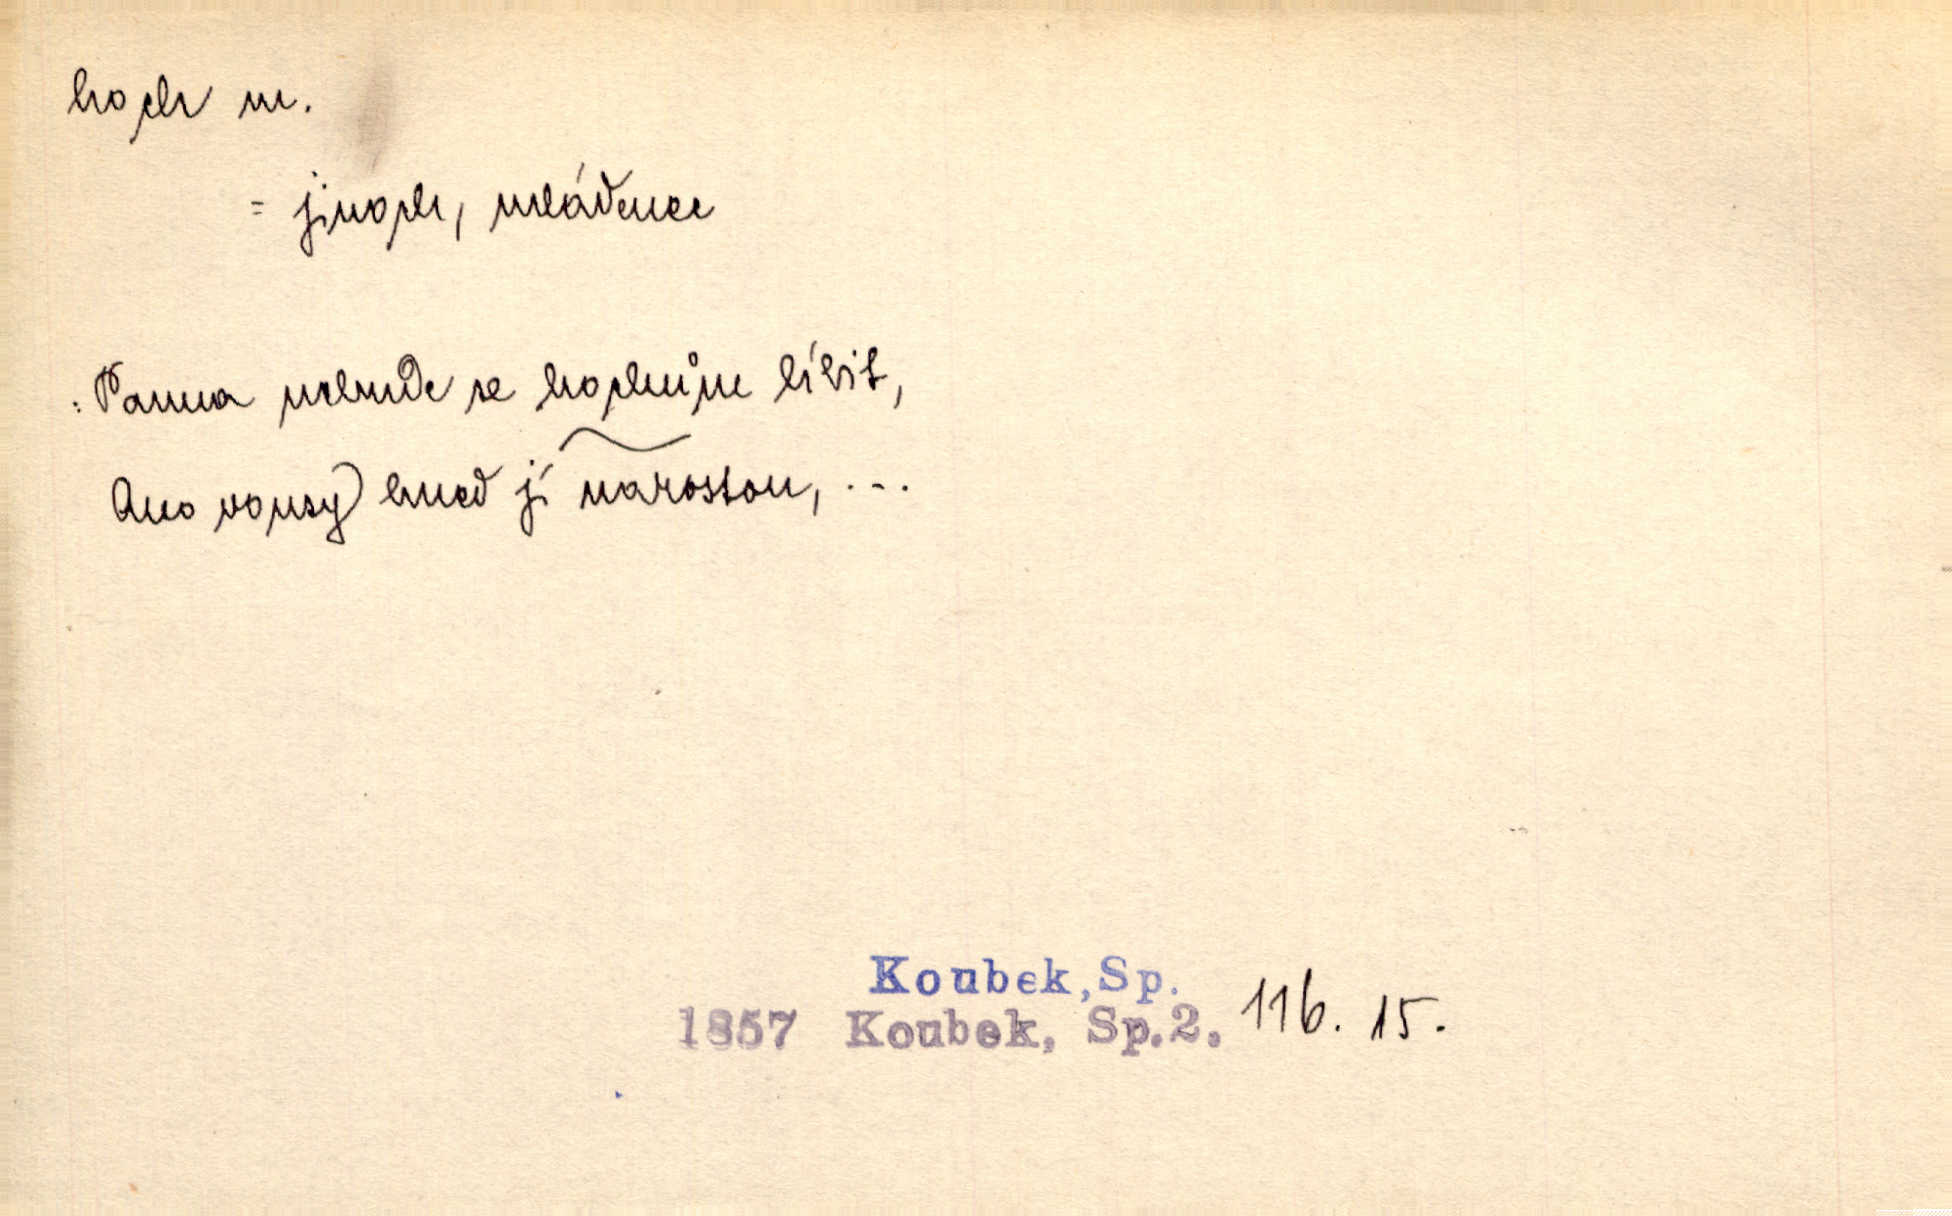 hoch m.
= jinoch, mládenec
: Panna nebude se hochům líbit,
Ano vousy) hned jí narostou, ...
Koubek, Sp.
1857 Koubek, Sp.2. 116. 15.